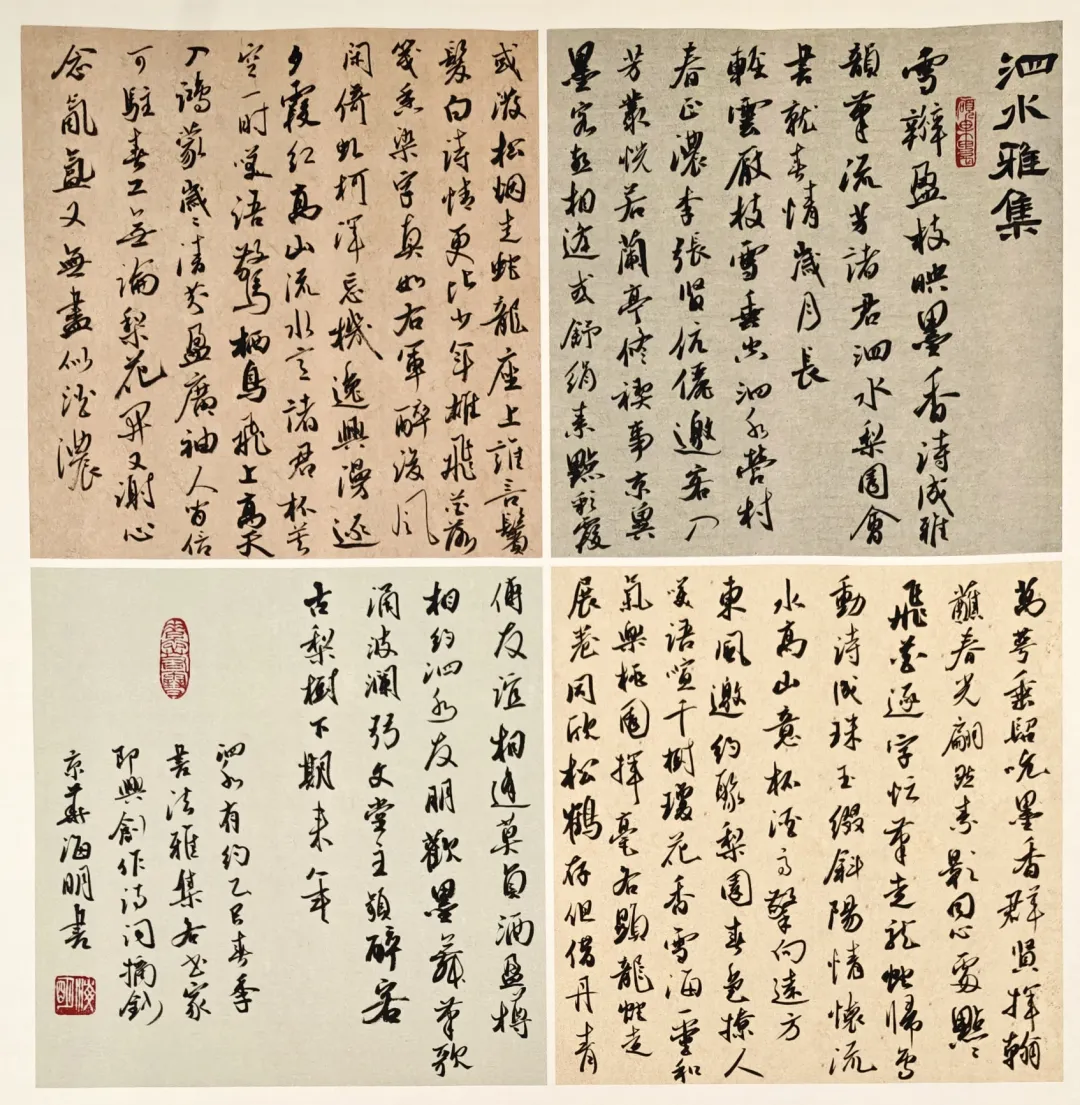 泗水雅集
雪辦盈枝映墨香诗成雅
韻筆流芳諸君泗水梨園會
書就春情歲月長
輕雲厰枝雪垂空泗水營村
春正濃李張賢伉儷邀客入
芳叢恍若蘭亭修禊事京冀
墨客喜相逢或舒绢素點彩霞
或潑松烟走蛇龍座上誰言鬢
髮白诗情更比少年雄飛花落
箋香染字真如右軍醉後風
闲倚虬柯浑忘機逸興漫逐
夕霞红高山流水言諸君杯莫
空一时笑語驚栖鳥飛上高天
入鴻蒙歲歲清芬盈廣袖人皆信
可駐春工无論梨花開又謝心
念氤氲又無盡似酒濃
萬萼垂墨香群賢揮翰
蘸春光翩然素影同心處點點
飛花逐字忙筆走龍蛇歸
動诗成珠玉缀斜陽情懷流
水高山意杯酒高擎向遠方
東風邀約聚梨園春色撩人
笑语喧千樹瓊花香雪海一堂和
氣樂桃園揮毫各顯龍蛇走
展卷同欣松鹤存但借丹青
傳友谊相逢莫負酒盈樽
相约泗水友朋歡墨舞筆歌
涌波瀾弱文堂主頻醉客
古梨樹下期来年
泗水有约乙巳春季
書法雅集各书家
即興創作诗词摘鈔
京華海明書
海明